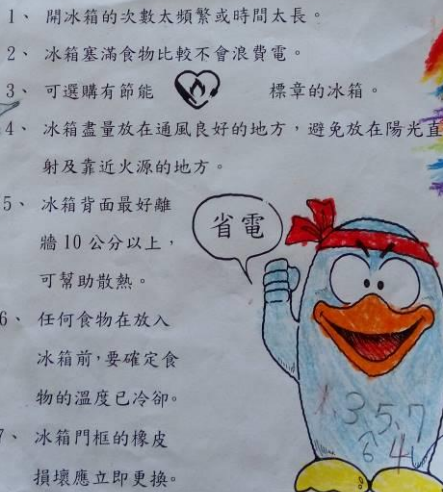 1、 開冰箱的次數太頻繁或時間太長。
2、 冰箱塞滿食物比較不會浪費電。
3、 可選購有節能 標章的冰箱。
4、 冰箱盡量放在通風良好的地方，避免放在陽光直
射及靠近火源的地方。
5、 冰箱背面最好離
牆 10 公分以上，
可幫助散熱。
省電
6、 任何食物在放入
冰箱前,要確定食
物的溫度已冷卻。
7、 冰箱門框的橡皮
損壞應立即更換。
1.3.5.7
6 4